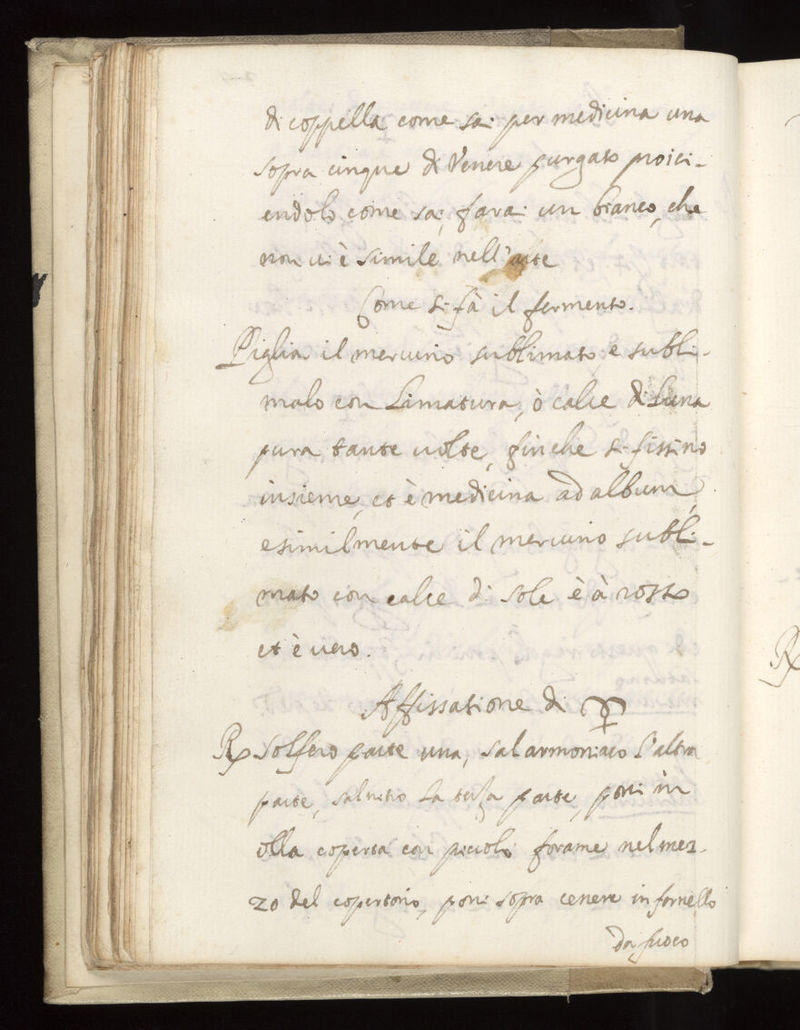 di coppella come sai per medicina una
sopra cinque di Venere purgato proici-
endolo come sai, farai un bianco, che
non ui è simile nell'arte
Come si fà il fermento.
Piglia il mercurio sublimato e subli-
malo con Limatura, ò calce di Luna
pura tante uolte, finche si fissino
insieme, et è medicina ad album,
e similmente il mercurio subli-
mato con calce di sole è à rosso
et è uero.
Affissatione di
℞ Solfero parte una, sal armoniaco l'altra
parte, salnitro la terza parte, poni in
olla coperta con piccolo forame nel mez-
zo del copertorio, poni sopra cenere in fornello
da fuoco
℞